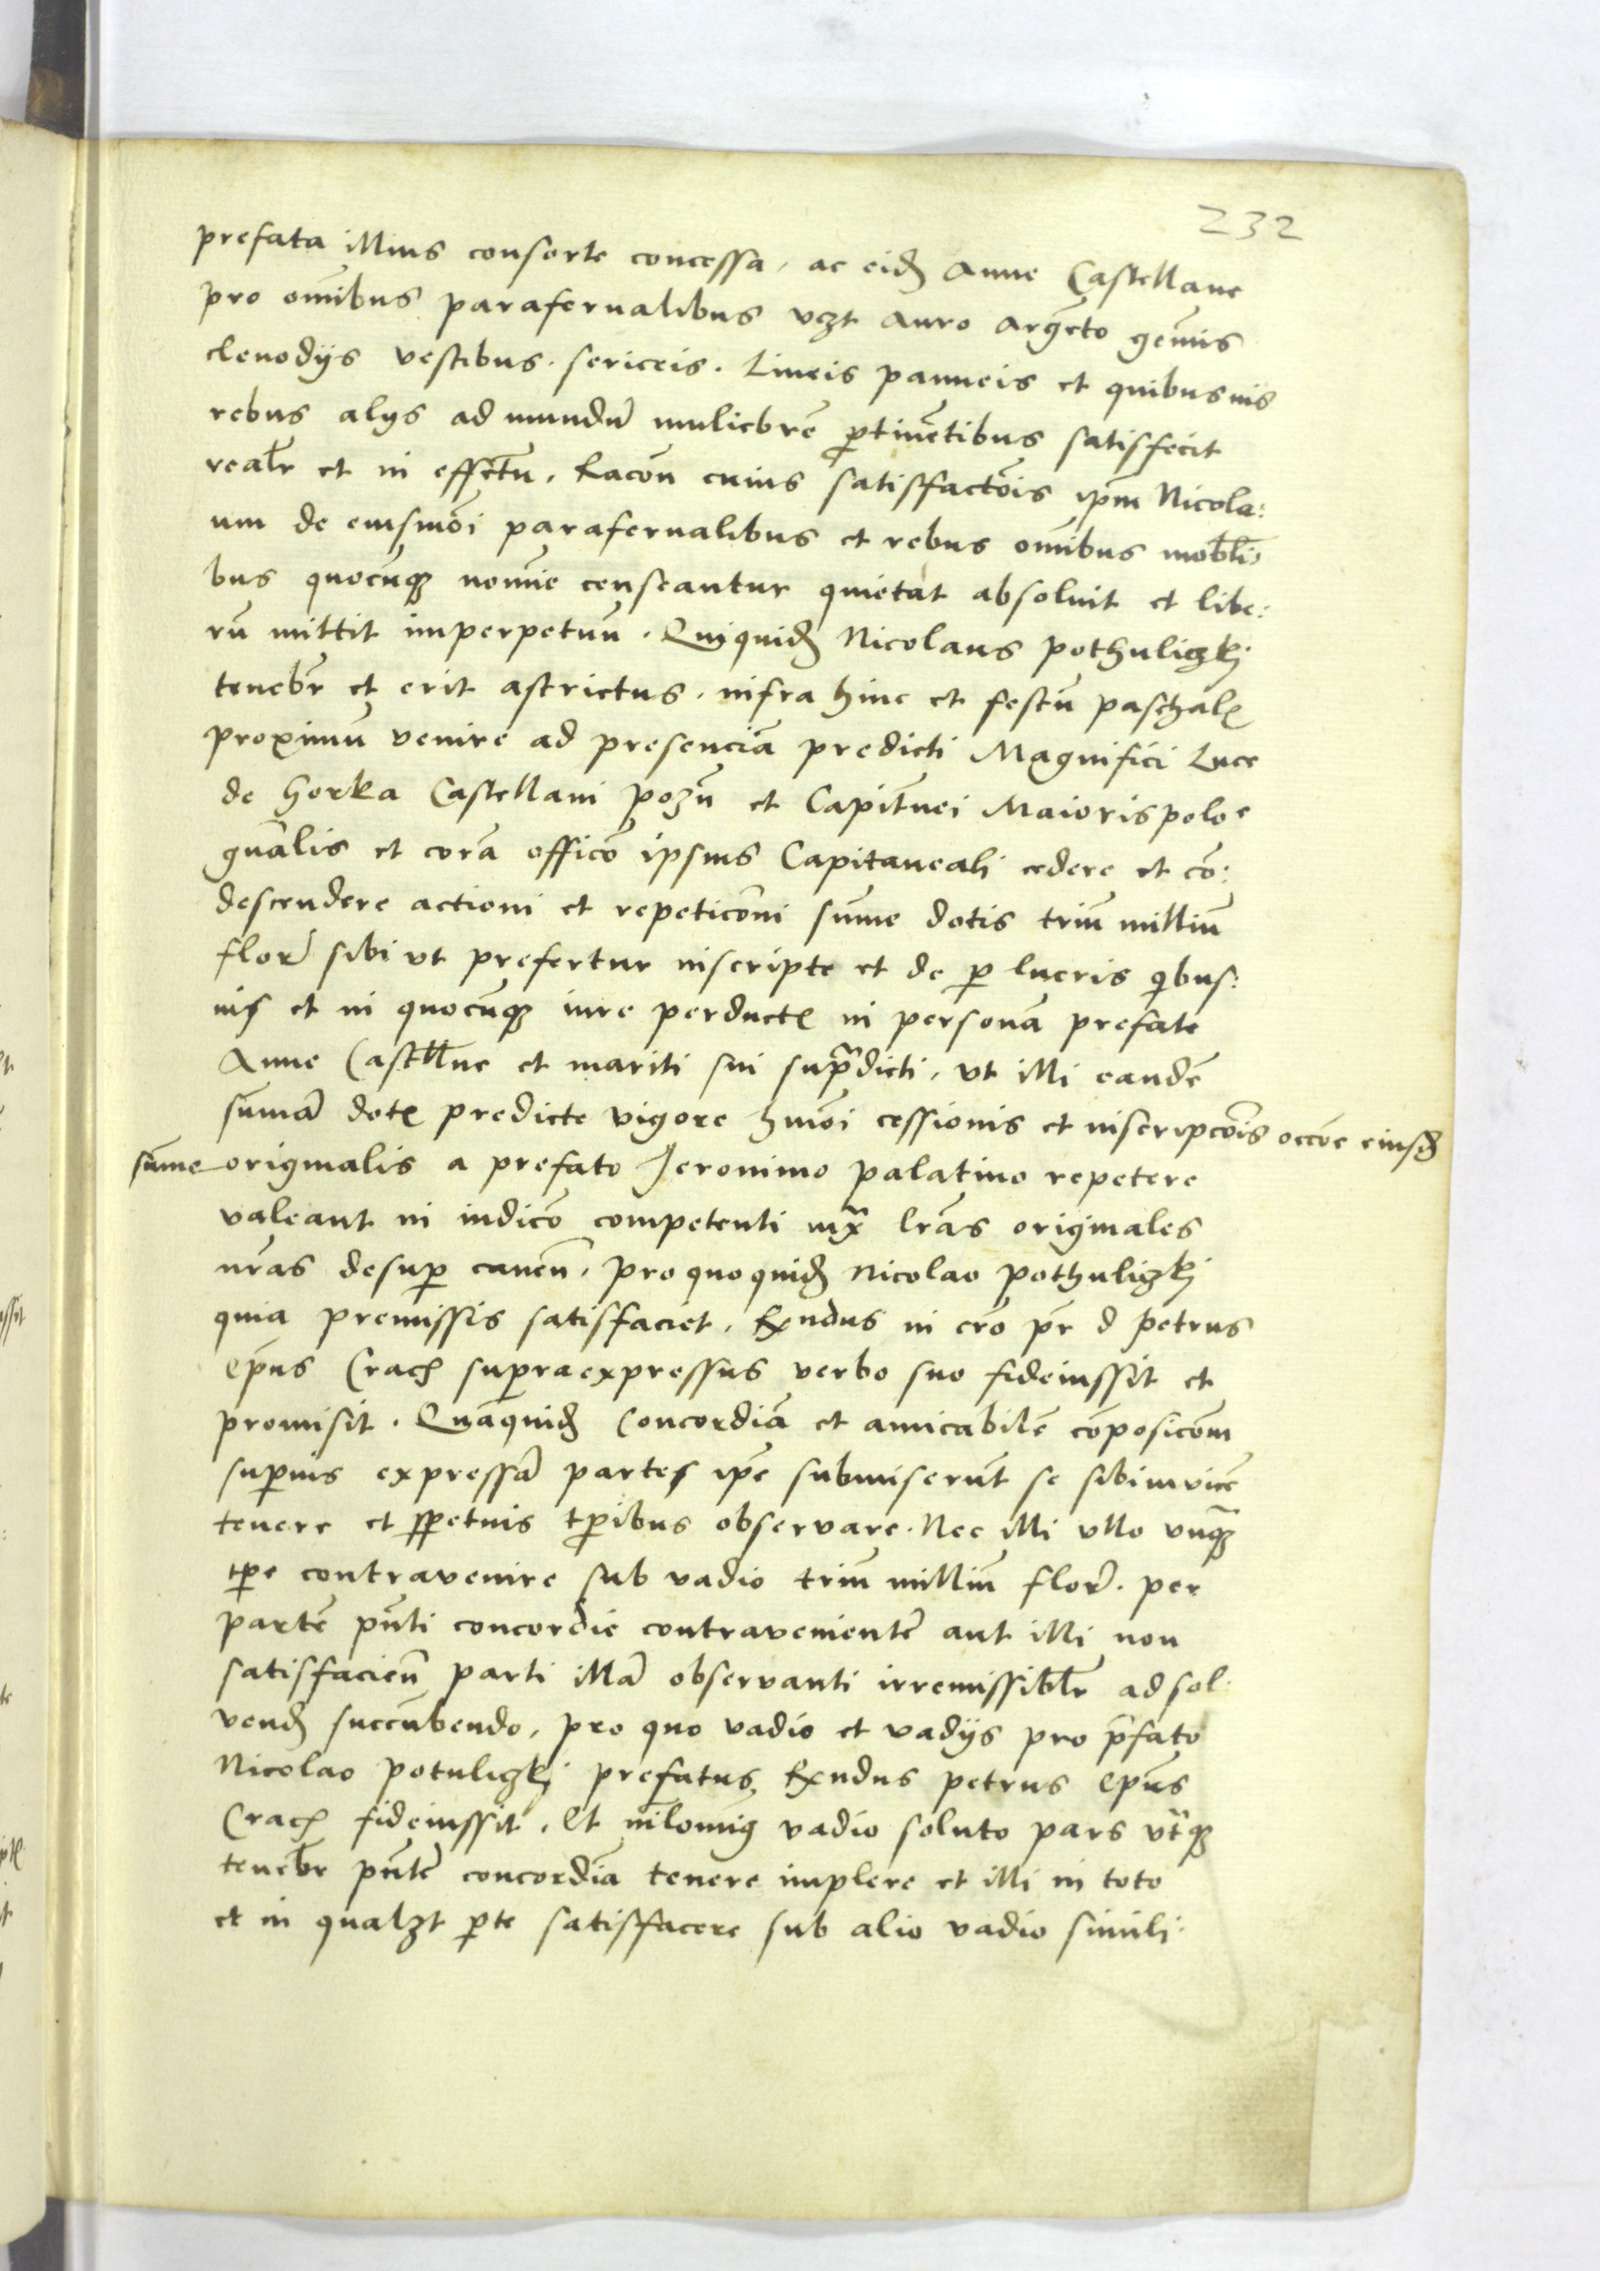 232
prefata illius consorte concessa, ac eid Anne Castellane
pro omībus parafernalibus vczt auro argēto gēmis
clenodijs vestibus. sericeis. lineis panneis et quibusuis
rebus alijs ad mundū muliebrē ꝑtinētibus satisfecit
realr̄ et in effctū. Racōn cuius satisfactōis ipm̄ Nicola:
um de eiusmōi parafernalibus et rebus omībus mobli
bus quocūqꝫ nomīe censeantur quietat absoluit et libe:
rū mittit imperpetuū. Quiquid Nicolaus pothuliczkj
tenebr̄ et erit astrictus, infra hinc et festū paschale
proximū venire ad presenciā predicti Magnifici Luce
de Gorka Castellani pozn̄ et Capitnei Maiorispoloe
gnālis et corā officō ipsius Capitaneali cedere et cō:
descendere actioni et repeticōni sūme dotis triū milliū
flor̄ sibi vt prefertur inscripte et de ꝑ lucris qibus:
uis et in quocūqꝫ iure perducte in personā prefate
Anne Castllne et mariti sui supradicti, vt illi eandē
sūmā dotis predicte vigore hmōi cessionis et inscripcōis occōe eiusd
sūme originalis a prefato Jeronimo palatino repetere
valeant in iudicō competenti iuxͣ lrās originales
nrās desuꝑ cauen̄, pro quoquid Nicolao pothuliczkj
quia premissis satisfaciet, Rxndus in cro pr̄ d petrus
Epūs Crach supraexpressus verbo suo fideiussit et
promisit. Quāquid Concordiā et amicabilē cōposicōm
suꝑius expressā partes ipe submiserūt se sibiinvicē
tenere et ꝑpetuis tꝑibus observare. Nec illi vllo vnqͣꝫ
tꝑe contravenire sub vadio triū milliū flor̄. per
partē pn̄ti concordie contravenientē aut illi non
satisfacien̄ parti illā observanti irremissiblr̄ adsol
vend succūbendo, pro quo vadio et vadijs pro p̄fato
Nicolao potuliczkj prefatus Rxndus petrus Epūs
Crach fideiussit. Et nīlominꝰ vadio soluto pars vtͣqꝫ
tenebr̄ pn̄tē concordiā tenere implere et illi in toto
et in qualzt ꝑte satisfacere sub alio vadio simili